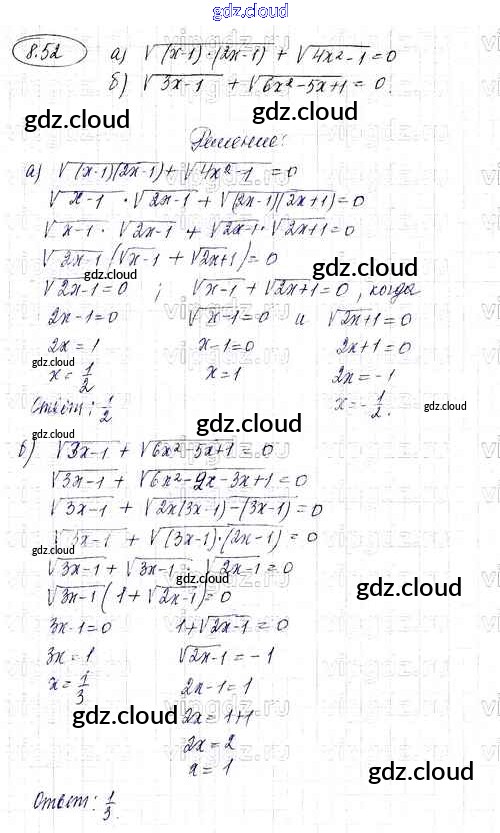 gdz.cloud
8.52 а) √(x-1)·(2x-1) + √4x²-1 = 0
б) √3x-1 + √6x²-5x+1 = 0.
gdz.cloud
gdz.cloud
Решение:
а) √(x-1)(2x-1) + √4x²-1 = 0
√x-1 · √2x-1 + √(2x-1)(2x+1) = 0
√x-1 · √2x-1 + √2x-1 · √2x+1 = 0
√2x-1 (√x-1 + √2x+1) = 0
gdz.cloud
gdz.cloud
√2x-1 = 0 ; √x-1 + √2x+1 = 0, когда
2x-1=0 √x-1 = 0 и √2x+1 = 0
2x = 1 x-1=0 2x+1=0
gdz.cloud
x = 1/2 x=1 2x = -1
Ответ: 1/2 x = -1/2.
gdz.cloud
gdz.cloud
gdz.cloud
б) √3x-1 + √6x²-5x+1 = 0
√3x-1 + √6x²-2x-3x+1 = 0
√3x-1 + √2x(3x-1)-(3x-1) = 0
√3x-1 + √(3x-1)·(2x-1) = 0
gdz.cloud
√3x-1 + √3x-1 · √2x-1 = 0
gdz.cloud
gdz.cloud
√3x-1 (1 + √2x-1) = 0
3x-1=0 1+√2x-1 = 0
3x = 1 √2x-1 = -1
x = 1/3 2x-1=1
gdz.cloud
2x = 1+1
2x = 2
gdz.cloud
x = 1
gdz.cloud
Ответ: 1/3.